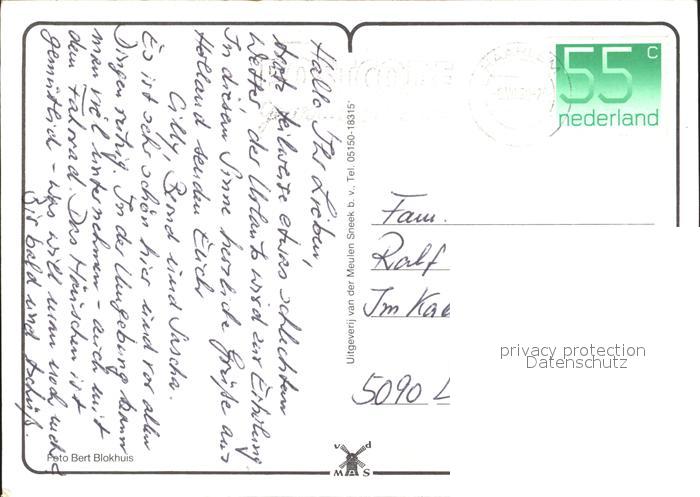 Hallo Ihr Lieben,
trotz teilweise etwas schlechtem
Wetter, der Urlaub wird zur Erholung.
In diesem Sinne herzliche Grüße aus
Holland senden Euch
Cilly, Bernd und Sascha.
Es ist sehr schön hier und vor allen
Dingen ruhig. In der Umgebung kann
man viel unternehmen - auch mit
dem Fahrrad. Das Häuschen ist
gemütlich - was will man noch mehr?
Bis bald und tschüß.
Foto Bert Blokhuis
Uitgeverij van der Meulen Sneek b.v. Tel. 05150-18315*
55 c
nederland
Fam.
Ralf
Im
5090 L
privacy protection
Datenschutz
v d
MAS